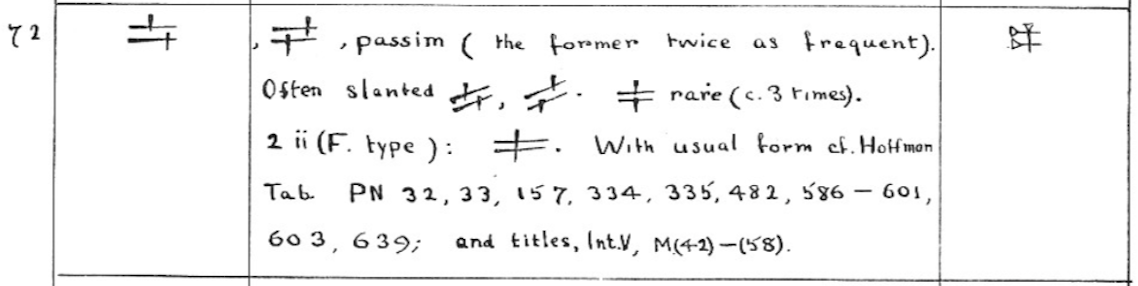 72 , , passim ( the former twice as frequent).
Often slanted , . rare (c. 3 times).
2 ii (F. type ) : . With usual form cf. Hoffman
Tab. PN 32, 33, 157, 334, 335, 482, 586 – 601,
603, 639; and titles, Int.V, M(42) – (58).